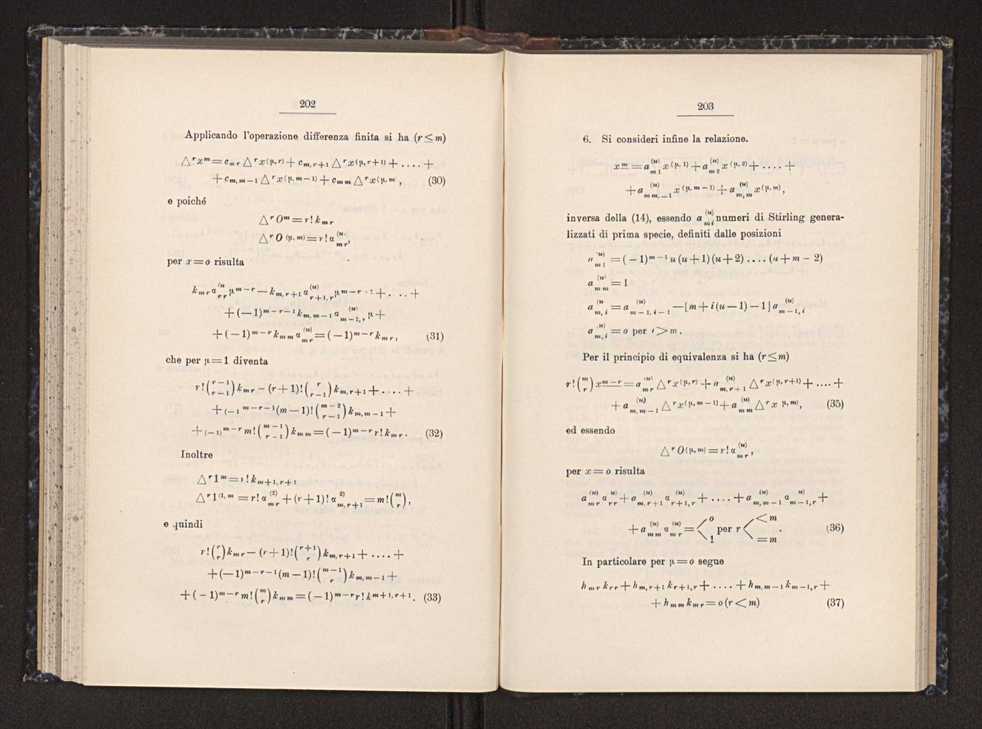 202
Applicando l'operazione differenza finita si ha (r ≤ m)
△ʳxᵐ = c_{mr} △ʳx^{(μ,r)} + c_{m,r+1} △ʳx^{(μ,r+1)} + .... +
+ c_{m,m−1} △ʳx^{(μ,m−1)} + c_{mm} △ʳx^{(μ,m)}, (30)
e poiché
△ʳ0ᵐ = r! k_{mr}
△ʳ0^{(μ,m)} = r! α_{mr}^{(μ)},
per x = o risulta
k_{mr} α_{rr}^{(μ)} μ^{m−r} − k_{m,r+1} α_{r+1,r}^{(μ)} μ^{m−r−1} + .... +
+ (−1)^{m−r−1} k_{m,m−1} α_{m−1,r}^{(μ)} μ +
+ (−1)^{m−r} k_{mm} α_{mr}^{(μ)} = (−1)^{m−r} k_{mr}, (31)
che per μ = 1 diventa
r! (r−1 / r−1) k_{mr} − (r+1)! (r / r−1) k_{m,r+1} + .... +
+ (−1)^{m−r−1} (m−1)! (m−2 / r−1) k_{m,m−1} +
+ (−1)^{m−r} m! (m−1 / r−1) k_{mm} = (−1)^{m−r} r! k_{mr}. (32)
Inoltre
△ʳ1ᵐ = r! k_{m+1,r+1}
△ʳ1^{(1,m} = r! α_{mr}^{(1)} + (r+1)! α_{m,r+1}^{1)} = m! (m / r),
e quindi
r! (r / r) k_{mr} − (r+1)! (r+1 / r) k_{m,r+1} + .... +
+ (−1)^{m−r−1} (m−1)! (m−1 / r) k_{m,m−1} +
+ (−1)^{m−r} m! (m / r) k_{mm} = (−1)^{m−r} r! k_{m+1,r+1}. (33)
203
6. Si consideri infine la relazione.
xᵐ = a_{m1}^{(u)} x^{(μ,1)} + a_{m2}^{(u)} x^{(μ,2)} + .... +
+ a_{m,m−1}^{(u)} x^{(μ,m−1)} + a_{m,m}^{(u)} x^{(μ,m)},
inversa della (14), essendo a_{mi}^{(u)} numeri di Stirling genera-
lizzati di prima specie, definiti dalle posizioni
a_{m1}^{(u)} = (−1)^{m−1} u (u+1) (u+2) .... (u+m−2)
a_{mm}^{(u)} = 1
a_{m,i}^{(u} = a_{m−1,i−1}^{(u)} − [m + i (u−1) − 1] a_{m−1,i}^{(u)}
a_{m,i}^{(u)} = o per i > m.
Per il principio di equivalenza si ha (r ≤ m)
r! (m / r) x^{m−r} = a_{mr}^{(u)} △ʳx^{(μ,r)} + a_{m,r+1}^{(u)} △ʳx^{(μ,r+1)} + .... +
+ a_{m,m−1}^{(u)} △ʳx^{(μ,m−1)} + a_{mm}^{(u)} △ʳx^{(μ,m)}, (35)
ed essendo
△ʳ0^{(μ,m)} = r! α_{mr}^{(u)},
per x = o risulta
a_{mr}^{(u)} α_{rr}^{(u)} + a_{m,r+1}^{(u)} α_{r+1,r}^{(u)} + .... + a_{m,m−1}^{(u)} α_{m−1,r}^{(u)} +
+ a_{mm}^{(u)} α_{mr}^{(u)} = < o 1 per r < <m =m . (36)
In particolare per μ = o segue
h_{mr} k_{rr} + h_{m,r+1} k_{r+1,r} + .... + h_{m,m−1} k_{m−1,r} +
+ h_{mm} k_{mr} = o (r < m) (37)